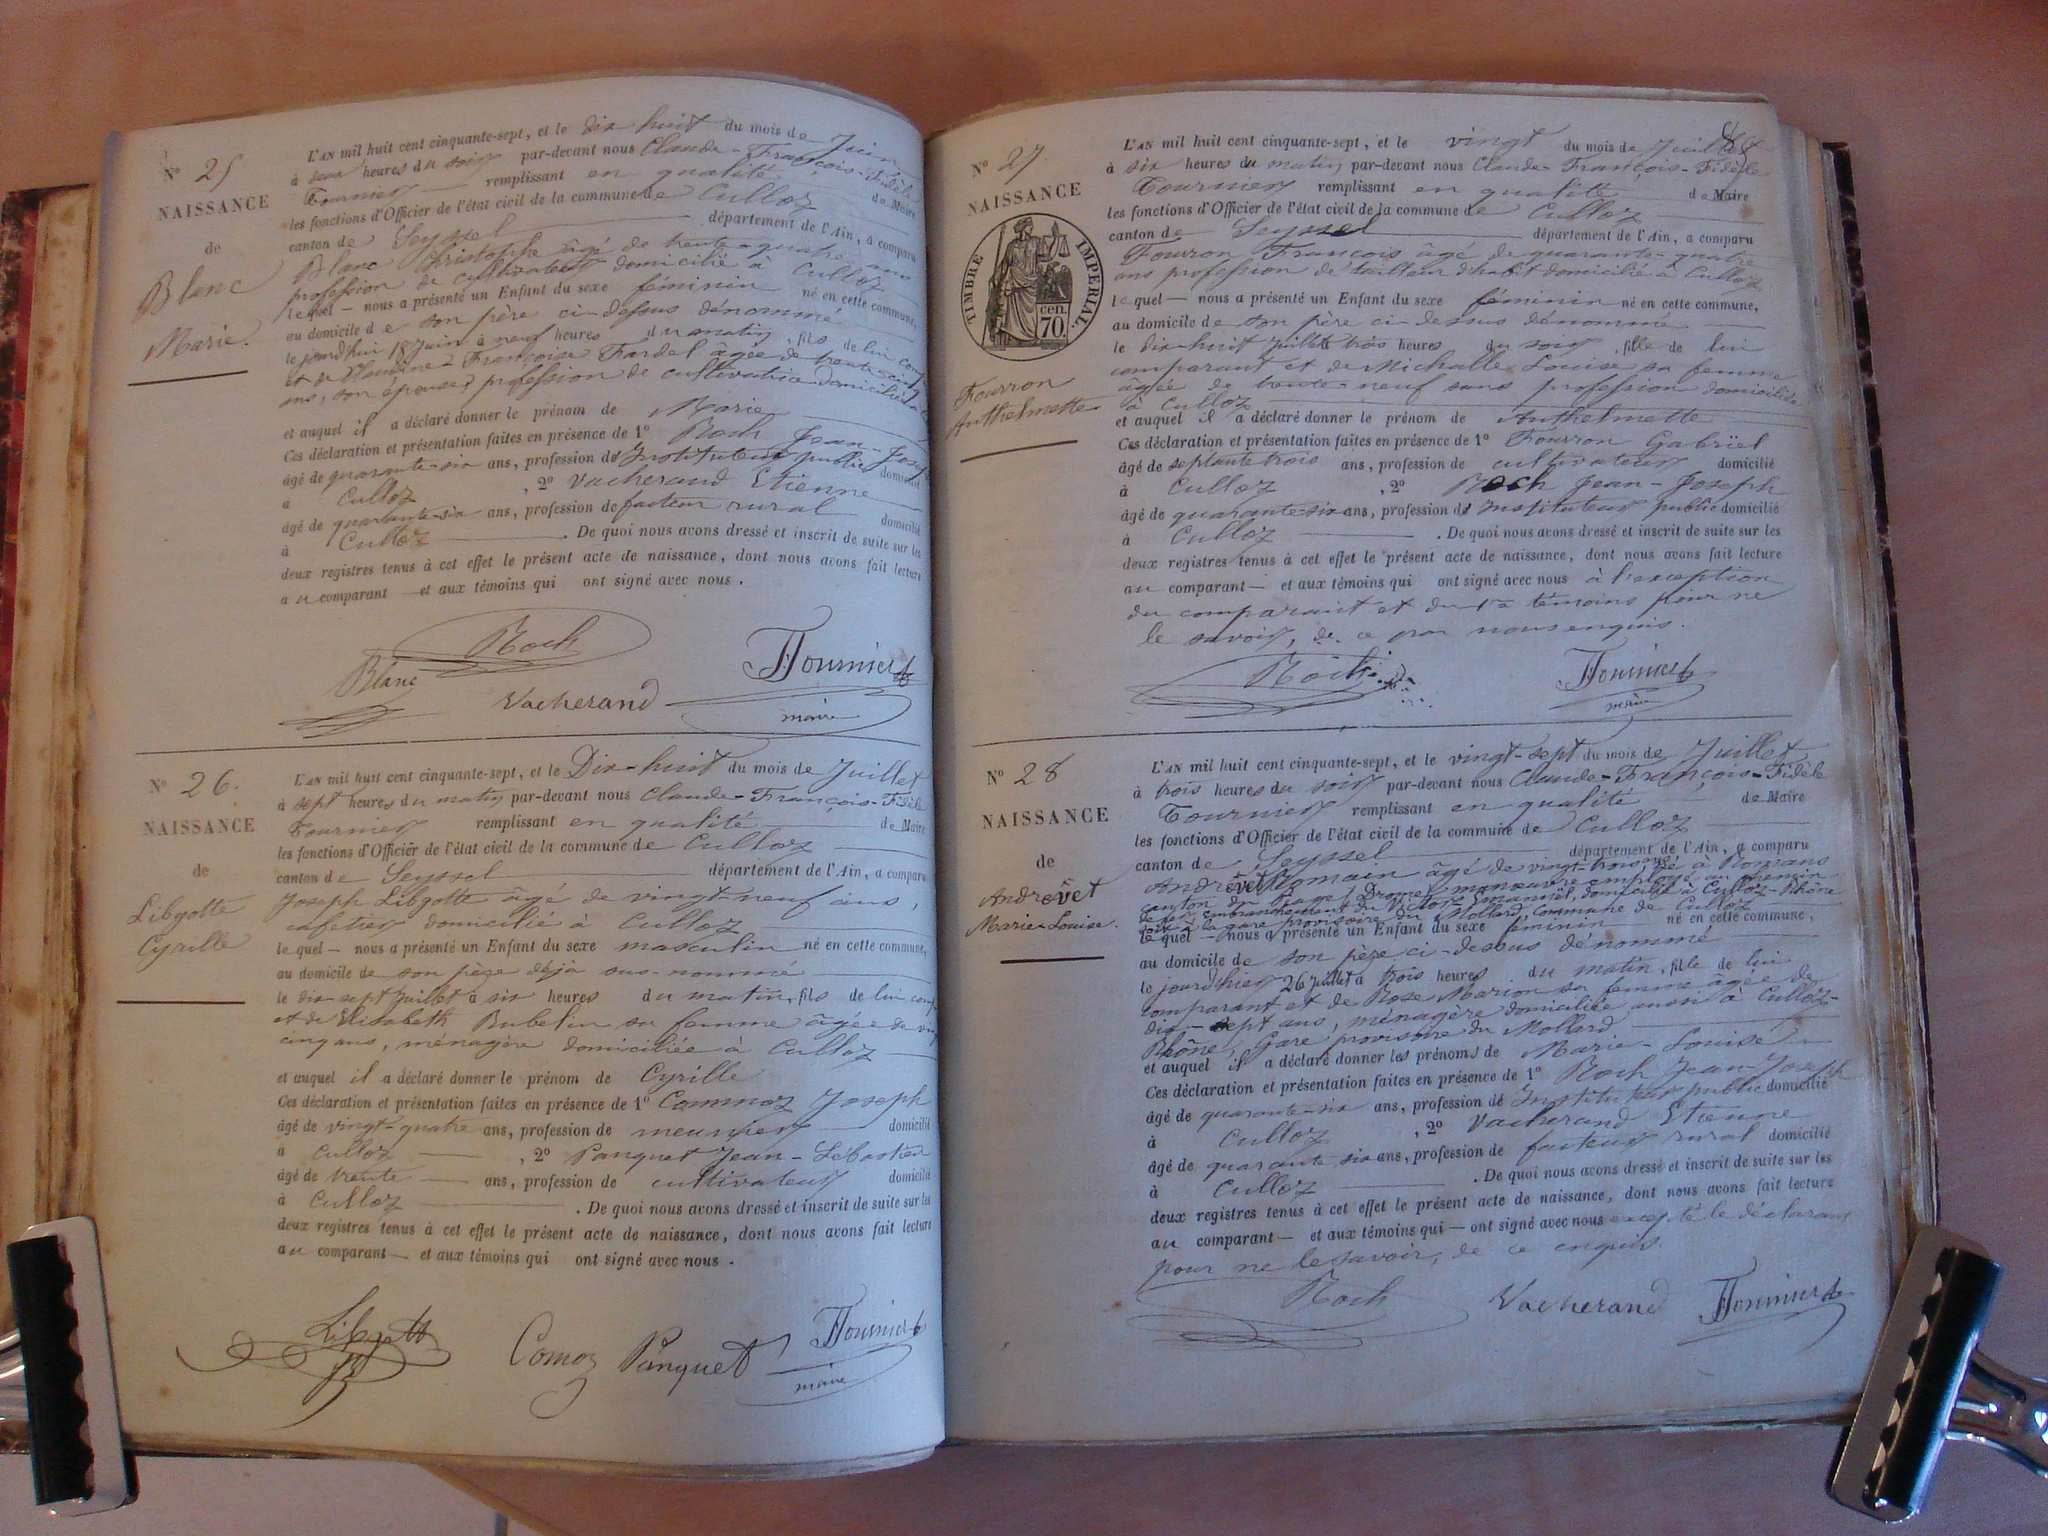 N° 25
NAISSANCE
de
Blanc
Marie.
L'AN mil huit cent cinquante-sept, et le dix huit du mois de Juin
à heures du soir par-devant nous Claude-François-Fidèle
Fournier remplissant en qualité de Maire
les fonctions d'Officier de l'état civil de la commune de Culloz
canton de Seyssel département de l'Ain, a comparu
Blanc Christophe âgé de trente-quatre ans
profession de cultivateur domicilié à Culloz
lequel nous a présenté un Enfant du sexe féminin né en cette commune,
au domicile de son père ci-dessus dénommé
le jourd'hui 18 Juin à neuf heures du matin, fils de lui
et de Claudine-Françoise Fardel âgée de trente-cinq
ans, son épouse, profession de cultivatrice domiciliée
et auquel il a déclaré donner le prénom de Marie
Ces déclaration et présentation faites en présence de 1° Roch Jean-Joseph
âgé de quarante-six ans, profession de Instituteur public domicilié
à Culloz, 2° Vacherand Etienne
âgé de quarante-six ans, profession de facteur rural domicilié
à Culloz. De quoi nous avons dressé et inscrit de suite sur les
deux registres tenus à cet effet le présent acte de naissance, dont nous avons fait lecture
au comparant et aux témoins qui ont signé avec nous.
Roch
Blanc Vacherand Fournier
maire
N° 26.
NAISSANCE
de
Libgotte
Cyrille
L'AN mil huit cent cinquante-sept, et le Dix-huit du mois de Juillet
à sept heures du matin par-devant nous Claude-François-Fidèle
Fournier remplissant en qualité de Maire
les fonctions d'Officier de l'état civil de la commune de Culloz
canton de Seyssel département de l'Ain, a comparu
Joseph Libgotte âgé de vingt-neuf ans,
cafetier domicilié à Culloz
lequel nous a présenté un Enfant du sexe masculin né en cette commune,
au domicile de son père déjà sus-nommé
le dix-sept Juillet à six heures du matin, fils de lui
et de Elisabeth Bubelin sa femme âgée de
cinq ans, ménagère domiciliée à Culloz
et auquel il a déclaré donner le prénom de Cyrille
Ces déclaration et présentation faites en présence de 1° Commoz Joseph
âgé de vingt-quatre ans, profession de meunier domicilié
à Culloz, 2° Panquet Jean-Sébastien
âgé de trente ans, profession de cultivateur domicilié
à Culloz. De quoi nous avons dressé et inscrit de suite sur les
deux registres tenus à cet effet le présent acte de naissance, dont nous avons fait lecture
au comparant et aux témoins qui ont signé avec nous.
Libgotte Comoz Panquet Fournier
maire
N° 27
NAISSANCE
TIMBRE IMPÉRIAL.
cen.
70.
Fourron
Anthelmette
L'AN mil huit cent cinquante-sept, et le vingt du mois de Juillet
à six heures du matin par-devant nous Claude-François-Fidèle
Fournier remplissant en qualité de Maire
les fonctions d'Officier de l'état civil de la commune de Culloz
canton de Seyssel département de l'Ain, a comparu
Fourron François âgé de quarante-quatre
ans profession de tailleur d'habit domicilié à Culloz
lequel nous a présenté un Enfant du sexe féminin né en cette commune,
au domicile de son père ci-dessus dénommé
le dix-huit Juillet à trois heures du soir, fille de lui
comparant et de Michalle Louise sa femme
âgée de trente-neuf sans profession domiciliée
à Culloz
et auquel il a déclaré donner le prénom de Anthelmette
Ces déclaration et présentation faites en présence de 1° Fourron Gabriel
âgé de septante trois ans, profession de cultivateur domicilié
à Culloz, 2° Roch Jean-Joseph
âgé de quarante-six ans, profession de Instituteur public domicilié
à Culloz. De quoi nous avons dressé et inscrit de suite sur les
deux registres tenus à cet effet le présent acte de naissance, dont nous avons fait lecture
au comparant et aux témoins qui ont signé avec nous à l'exception
du comparant et du 1er témoins pour ne
le savoir, de ce par nous enquis.
Roch Fournier
maire
N° 28
NAISSANCE
de
Andrevêt
Marie-Louise.
L'AN mil huit cent cinquante-sept, et le vingt-sept du mois de Juillet
à trois heures du soir par-devant nous Claude-François-Fidèle
Fournier remplissant en qualité de Maire
les fonctions d'Officier de l'état civil de la commune de Culloz
canton de Seyssel département de l'Ain, a comparu
Andrevêt Romain âgé de vingt-trois ans né à Romans
canton du (Drome) manœuvre employé au chemin
de fer embranchement du Victor Emanuël, domicilié à Culloz-Rhône
à la gare provisoire du Mollard, Commune de Culloz
lequel nous a présenté un Enfant du sexe féminin né en cette commune,
au domicile de son père ci-dessus dénommé
le jourd'hier 26 Juillet à trois heures du matin, fille de lui
comparant et de Rose Marion sa femme âgée de
dix-sept ans, ménagère domiciliée aussi à Culloz-
Rhône, gare provisoire du Mollard
et auquel il a déclaré donner les prénoms de Marie-Louise
Ces déclaration et présentation faites en présence de 1° Roch Jean-Joseph
âgé de quarante-six ans, profession de Instituteur public domicilié
à Culloz, 2° Vacherand Etienne
âgé de quarante six ans, profession de facteur rural domicilié
à Culloz. De quoi nous avons dressé et inscrit de suite sur les
deux registres tenus à cet effet le présent acte de naissance, dont nous avons fait lecture
au comparant et aux témoins qui ont signé avec nous excepté le déclarant
pour ne le savoir, de ce enquis.
Roch Vacherand Fournier